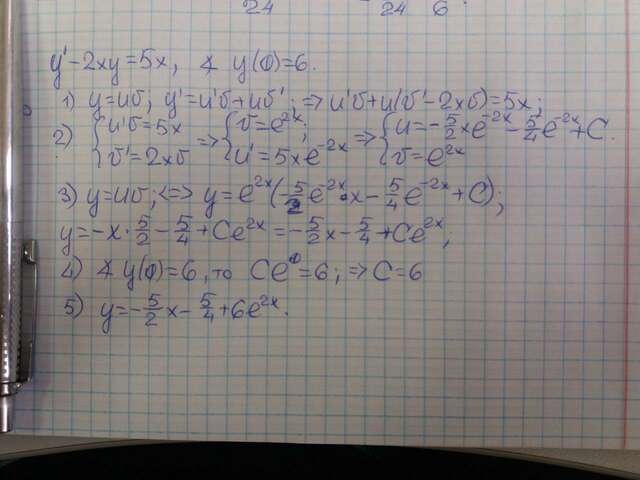 24 24 6
y' - 2xy = 5x, ∢ y(0) = 6.
1) y = uv; y' = u'v + uv'; => u'v + u(v' - 2xv) = 5x;
2) { u'v = 5x v' = 2xv => { v = e^{2x}; u' = 5xe^{-2x} => { u = -5/2 xe^{-2x} - 5/4 e^{-2x} + C. v = e^{2x}
3) y = uv; <=> y = e^{2x}(-5/2 e^{-2x}·x - 5/4 e^{-2x} + C);
y = -x·5/2 - 5/4 + Ce^{2x} = -5/2 x - 5/4 + Ce^{2x};
4) ∢ y(0) = 6, то Ce^0 = 6; => C = 6
5) y = -5/2 x - 5/4 + 6e^{2x}.